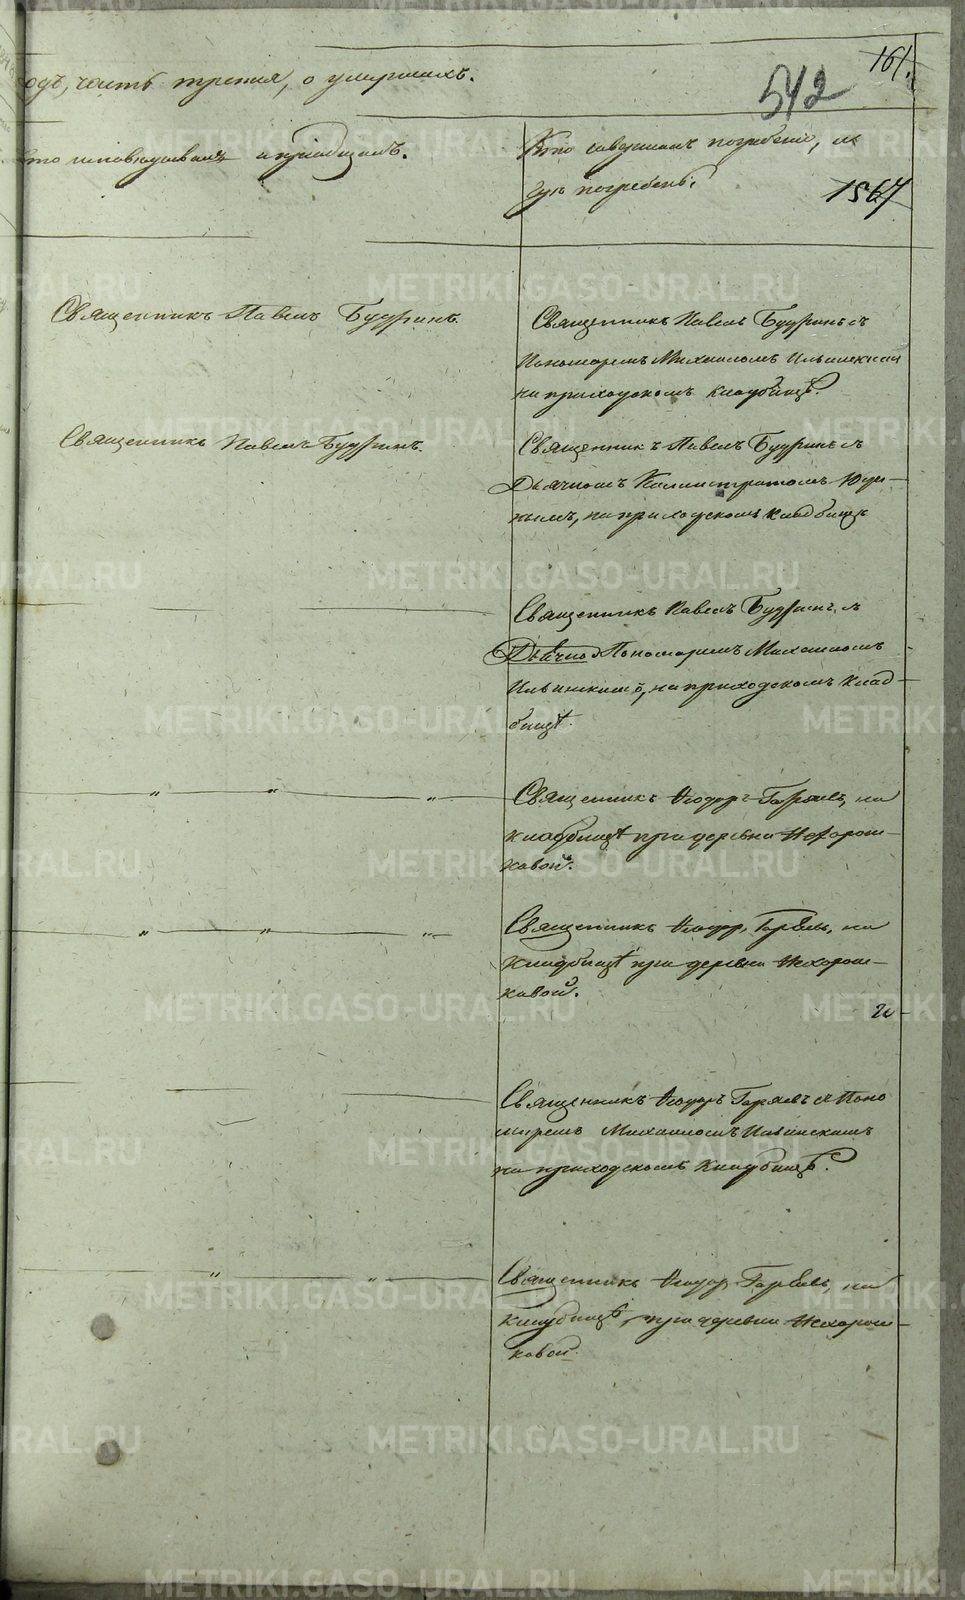 161.
542
одъ, часть третия, о умершихъ.
Кто исповѣдывалъ и приобщалъ.
Кто совершалъ погребенiе, и
гдѣ погребены.
1567
Священникъ Павелъ Будринъ.
Священникъ Павелъ Будринъ съ
Пономаремъ Михаиломъ Ильинскимъ
на приходскомъ кладбищѣ.
Священникъ Павелъ Будринъ.
Священникъ Павелъ Будринъ съ
Дьячкомъ Калистратомъ
на приходскомъ кладбищѣ
Священникъ Павелъ Будринъ съ
Пономаремъ Михаиломъ
Ильинскимъ, на приходскомъ клад-
бищѣ.
Священникъ Ѳеодоръ на
кладбищѣ при деревни Нехорош-
ковой.
Священникъ Ѳеодоръ на
кладбищѣ при деревни Нехорош-
ковой.
Священникъ Ѳеодоръ съ Поно
маремъ Михаиломъ Ильинскимъ
на приходскомъ кладбищѣ.
Священникъ Ѳеодоръ на
кладбищѣ, при деревни Нехорош-
ковой.
METRIKI.GASO-URAL.RU